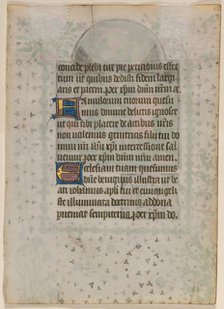 oncede plebi tue pie petitionis effec
tum ut quibus dedisti fidem largi
aris et pacem. per xp̄m dn̄m nr̄m
Famulorum tuorum quesu
mus domine delictis ignosce
ut qui placere de actibus nr̄is
non ualemus genitricis filii tui do
mini nr̄i intercessione sal
uemur. Per xp̄m dn̄m nr̄m amen.
Ecclesiam tuam quesumus
dn̄e benignus illustra ut be
ati iohannis apl̄i tui et euuangelis
te illuminata doctrinis ad dona
perueniat sempiterna. per xp̄m do.